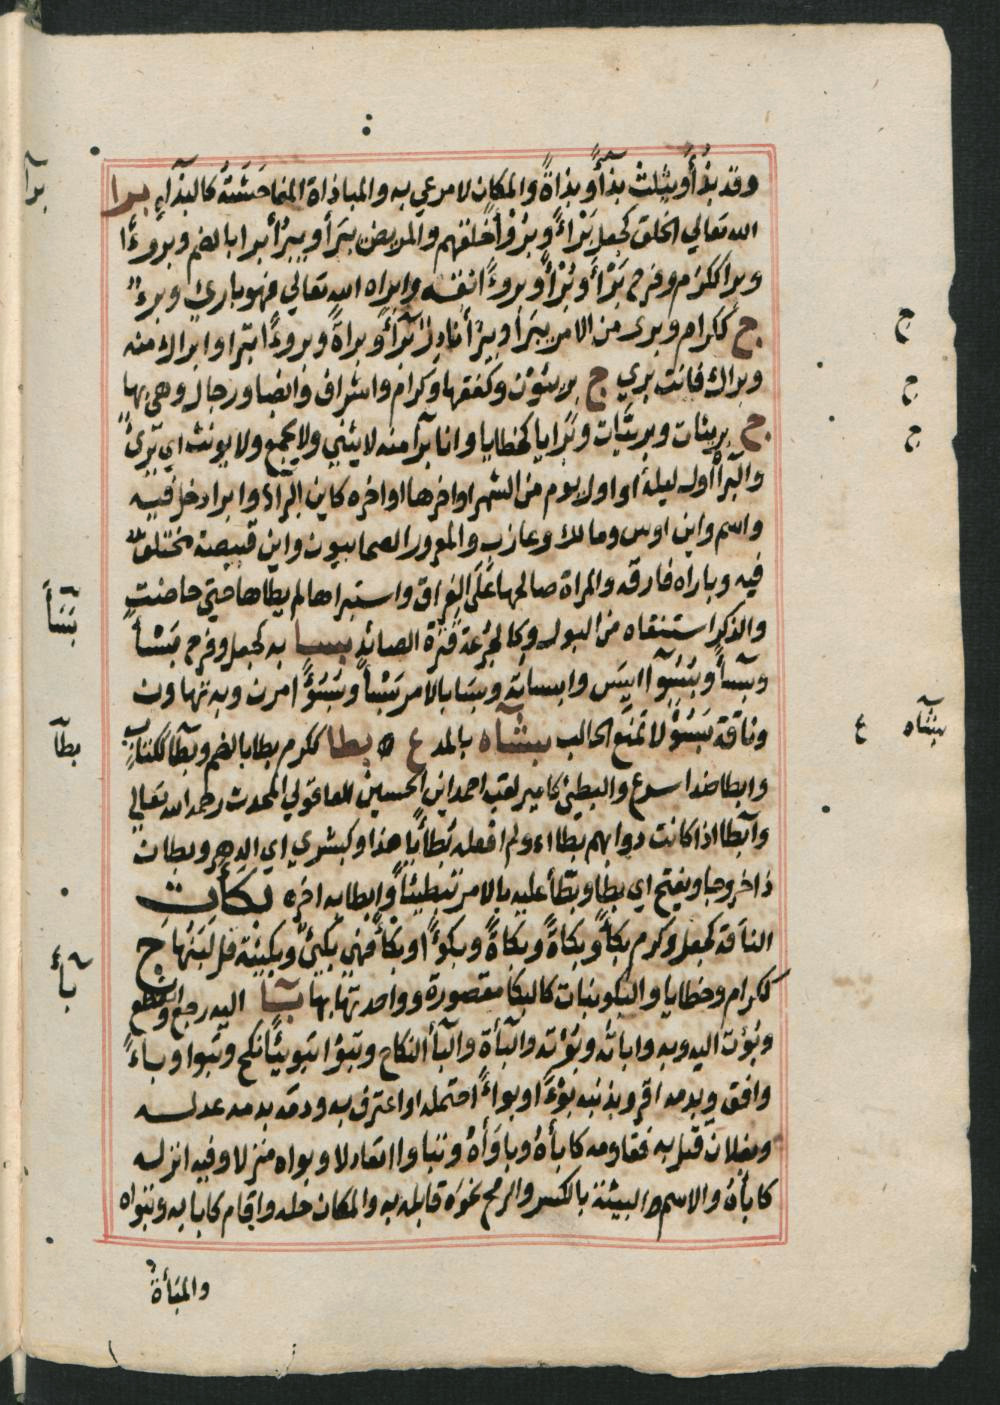 وقد بذُأ ويثلث بذآءً وبذاةً والمكان لا مرعي به والمباذاة المفاحَشَتة كالبذآءِ برا
الله تعالي الخلق كجعل بَرْاءً وبُرُوْاً خلقهم والمريض يبرَأ ويبرُأ برا بالضم وبروءًا
وبرا ككرم وفرح بَرْاً وبُرْاً وبروءً انقه وابراه الله تعالي فهو بارئ وبرءٌ
ج ككرام وبرئ من الامر يبرَا ويبرُأ نادِرٌ برَآءً وبراةً وبروءًا تبرا وابراك منه
وبراك فانت بري ج بريئون وكفقها وكرام واشراف وانصبا ورجال وهي بها
ج بريئات وبريَّات وبَرايا كخطايا وانا برآ منه لا يثني ولا يجمع ولا يونث اي بَرئٌ
والبَرآ اول ليلة او اول يوم من الشهر او اخرها او اخره كابن البرآء وابرا دخل فيه
واسم وابن اوس ومالك وعازب والمعرور الصحابيون وابن قبيصة مختلفٌ
فيه وباراه فارقه والمراة صالحها علي الفراق واستبراها لم يطاها حتي حاضت
والذكر استنقاه من البول وكالجرعة قترة الصائد بسا به كجعل وفرح بَسْأً
وبسآءً وبُسُوْآ انِسَ وابسايته وبسَا بالامر بَسْأً وبُسُوْءً امرن وبه تهاون
وناقة بَسُؤْ لا تمنع الحالب بشآه بالمد ع ٥ بطا ككرم بطا بالضم وبطآ ككتابٍ
وابطا ضد اسرع والبطئ كامير لقب احمد ابن الحسين العاقولي المحدث رحمه الله تعالي
وابطا اذا كانت دوابهم بطاء ولم افعله بُطأ يا هذا وكبشري اي الدهر وبطان
ذا خروجا ويفتح اي بطا وبطّأ عليه بالامر تبطيئاً وابطا به اخره بكات
الناقة كجعل وكرم بكأً وبكاةً وبكاةً وبكوءً او بكأً فهي بكئ وبكيئة قل لبَنُها ج
ككرام وخطايا والبكو نبات كالبكا مقصورة وواحدتها بها بآء اليه رجع او انقطع
وبُؤت اليه وبه واباته وبُؤته والبآة والبآ النكاح وتبؤا تبويئًا نكح وتبوا وباءً
وافق وبدمه اقر وبذنبه بوْءً او بواءً احتمله او اعترف به ودمه بدمه عدله
وبفلان قتل به فقاومه كاباهُ وباوأهُ وتباوا اتعادلا وبواه منزلا وفيه انزله
كاباهُ والاسم والبيئة بالكسر والرمح نحوَه قابله به والمكان حله واقام كابا به وتبواه
والمَبْاةُ
برآ
بَسَأ
بطآ
بأ
ج
ج
ج
بشآه ع